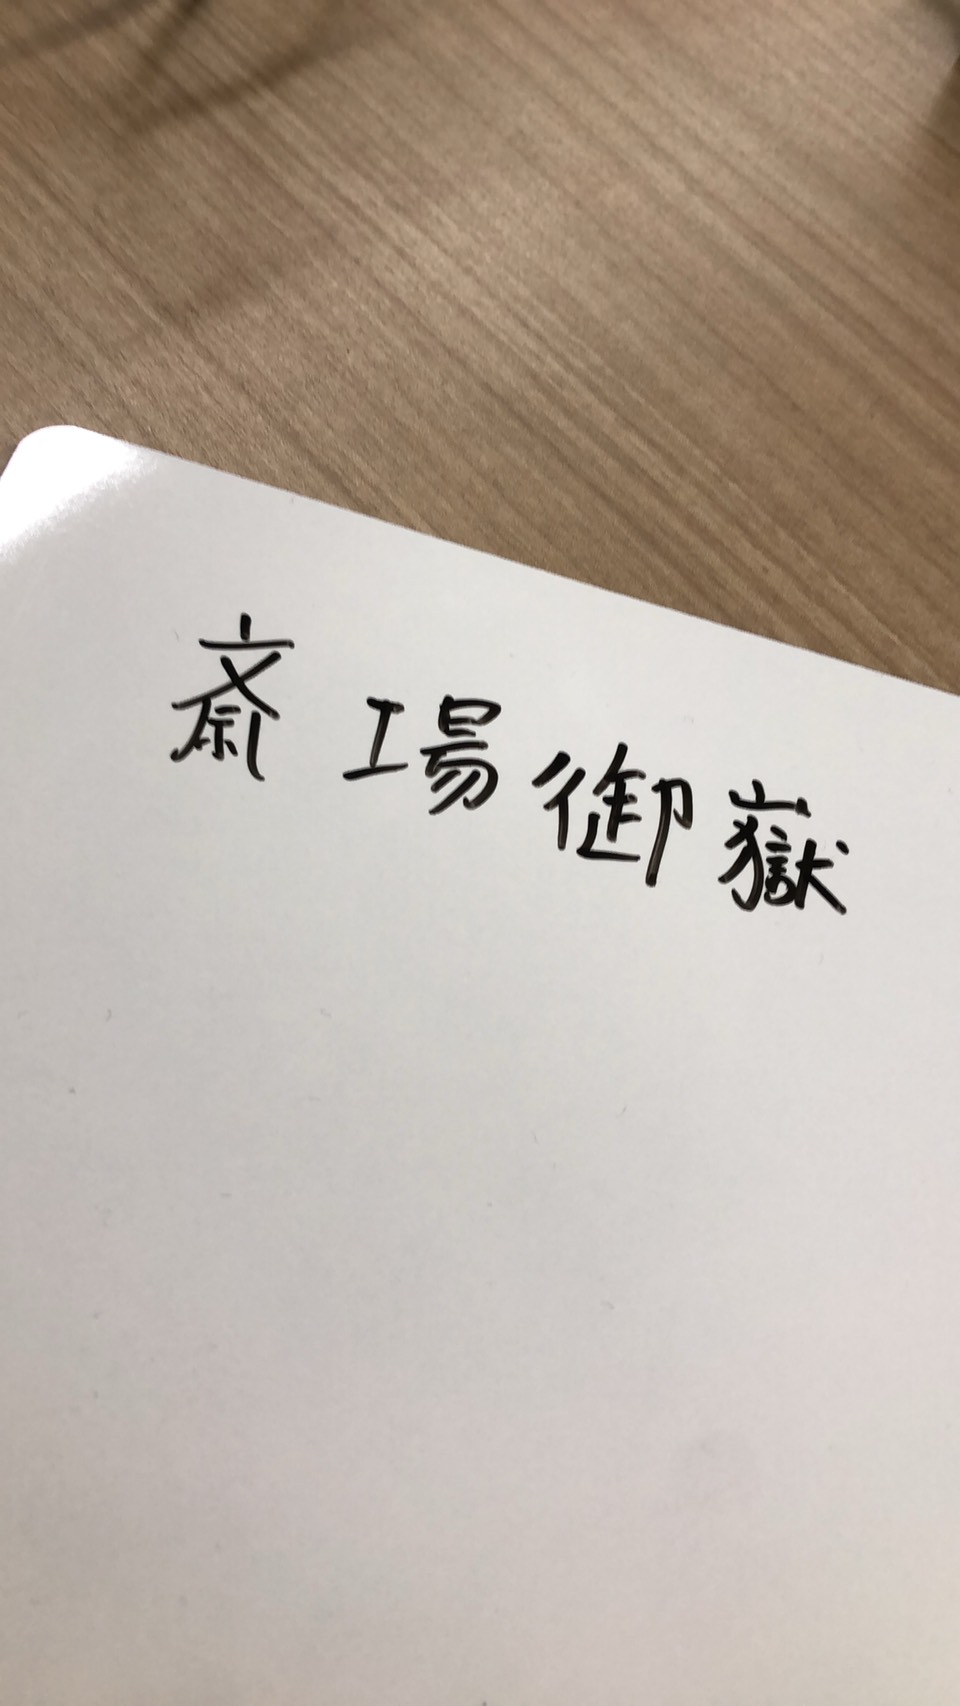 斎場御嶽